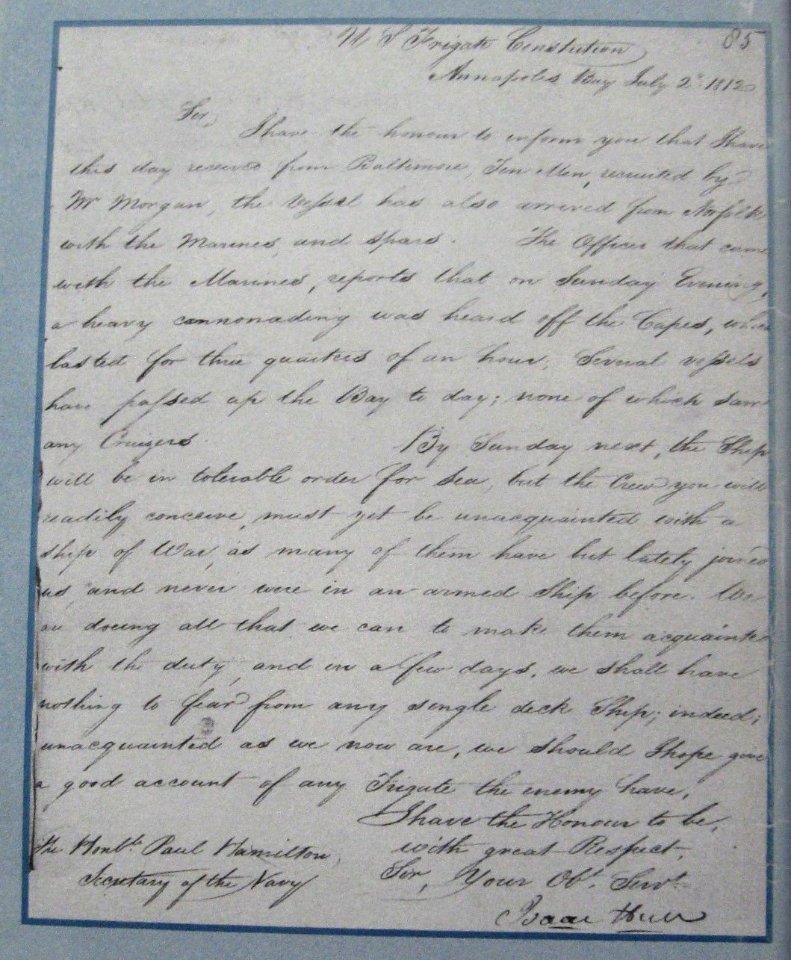 85
U S Frigate Constitution
Annapolis Bay July 2d 1812
Sir,
I have the honour to inform you that I have
this day received from Baltimore, Ten Men, recruited by
Mr Morgan, the Vessel has also arrived from Norfolk
with the Marines and spars. The Officer that came
with the Marines, reports that on Sunday Evening,
a heavy cannonading was heard off the Capes, which
lasted for three quarters of an hour, Several vessels
have passed up the Bay to day; none of which saw
any Cruizers. By Sunday next, the Ship
will be in tolerable order for sea, but the Crew you will
readily conceive, must yet be unacquainted with a
ship of War, as many of them have but lately joined
us and never were in an armed Ship before. We
are doeing all that we can to make them acquainted
with the duty, and in a few days, we shall have
nothing to fear from any single deck Ship; indeed;
unacquainted as we now are, we should I hope give
a good account of any Frigate the enemy have.
I have the Honour to be,
with great Respect,
Sir, Your Obt. Servt
Isaac Hull
The Honble. Paul Hamilton,
Secretary of the Navy